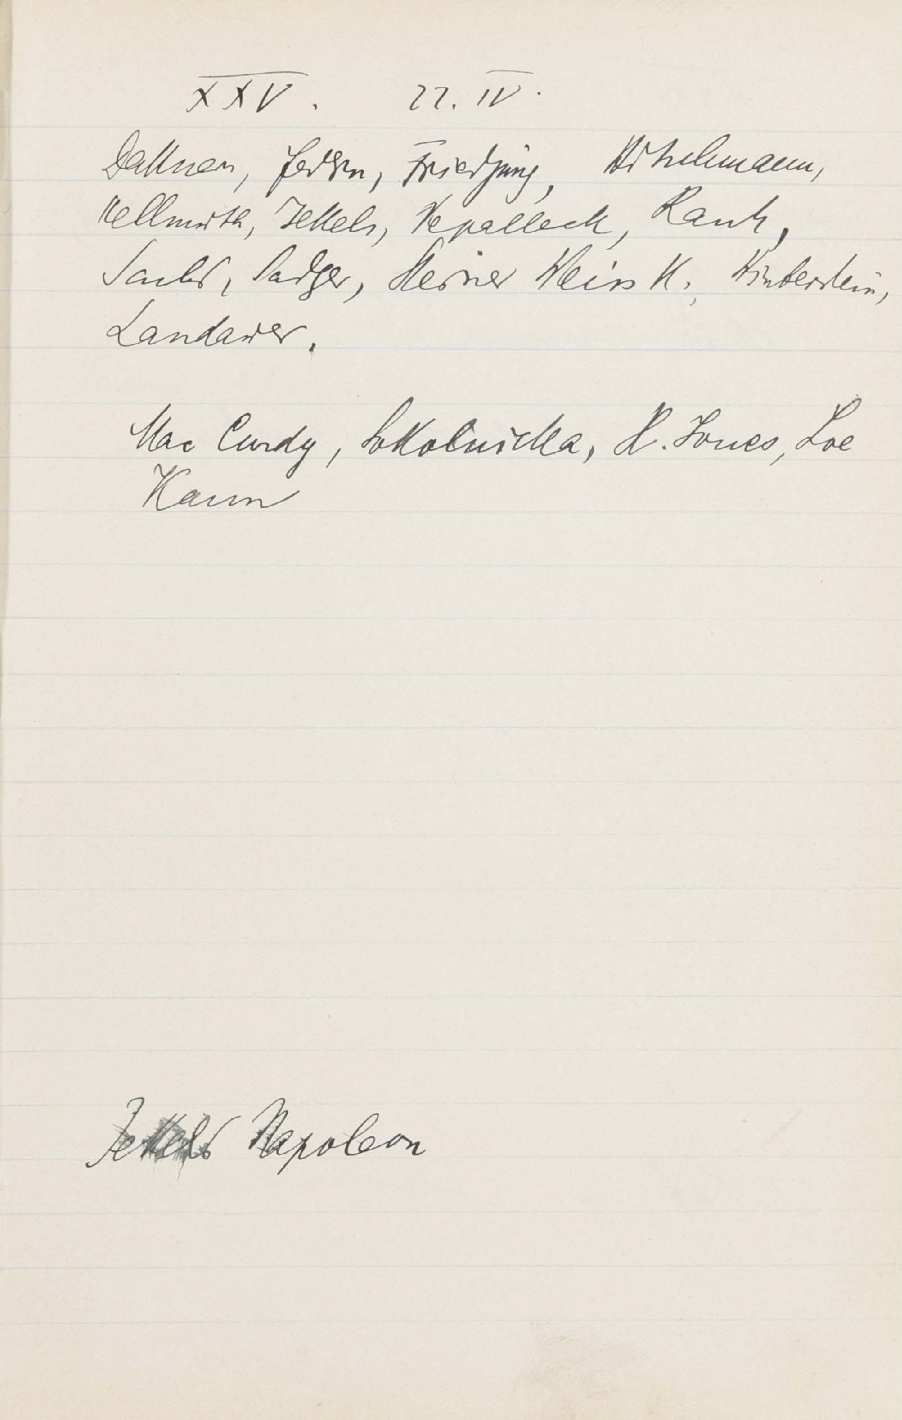 XXV. 22. IV.
Dattner, Federn, Friedjung, Hitschmann,
Hellmuth, Jekels, Nepalleck, Rank,
Sachs, Sadger, Steiner Weiss K., Winterstein,
Landauer.
Mac Curdy, Sokolnicka, H. Jones, Loe
Kann
Jekels Napoleon